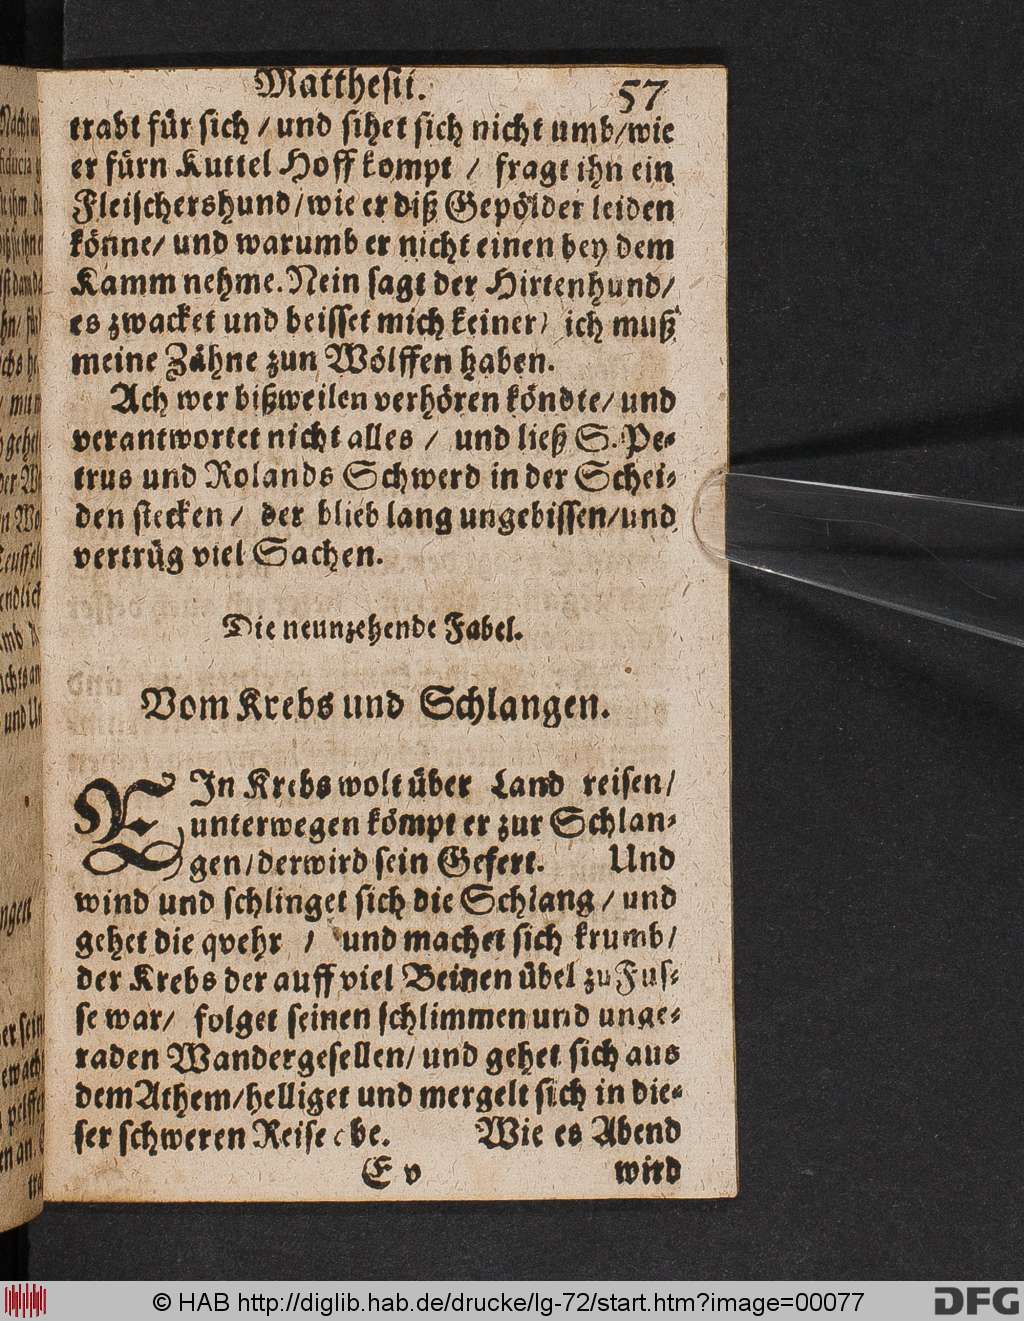 Matthesii. 57
trabt für sich / und sihet sich nicht umb/wie
er fürn Kuttel Hoff kompt / fragt ihn ein
Fleischershund/wie er diß Gepölder leiden
könne/ und warumb er nicht einen bey dem
Kamm nehme. Nein sagt der Hirtenhund/
es zwacket und beisset mich keiner/ ich muß
meine Zähne zun Wölffen haben.
Ach wer bißweilen verhören köndte/ und
verantwortet nicht alles / und ließ S. Pe-
trus und Rolands Schwerd in der Schei-
den stecken / der blieb lang ungebissen/und
vertrüg viel Sachen.
Die neunzehende Fabel.
Vom Krebs und Schlangen.
EIn Krebs wolt über Land reisen/
unterwegen kömpt er zur Schlan-
gen/der wird sein Gefert. Und
wind und schlinget sich die Schlang / und
gehet die qvehr / und machet sich krumb/
der Krebs der auff viel Beinen übel zu Fus-
se war/ folget seinen schlimmen und unge-
raden Wandergesellen/ und gehet sich aus
dem Athem/helliget und mergelt sich in die-
ser schweren Reise abe. Wie es Abend
E v wird
© HAB http://diglib.hab.de/drucke/lg-72/start.htm?image=00077
DFG